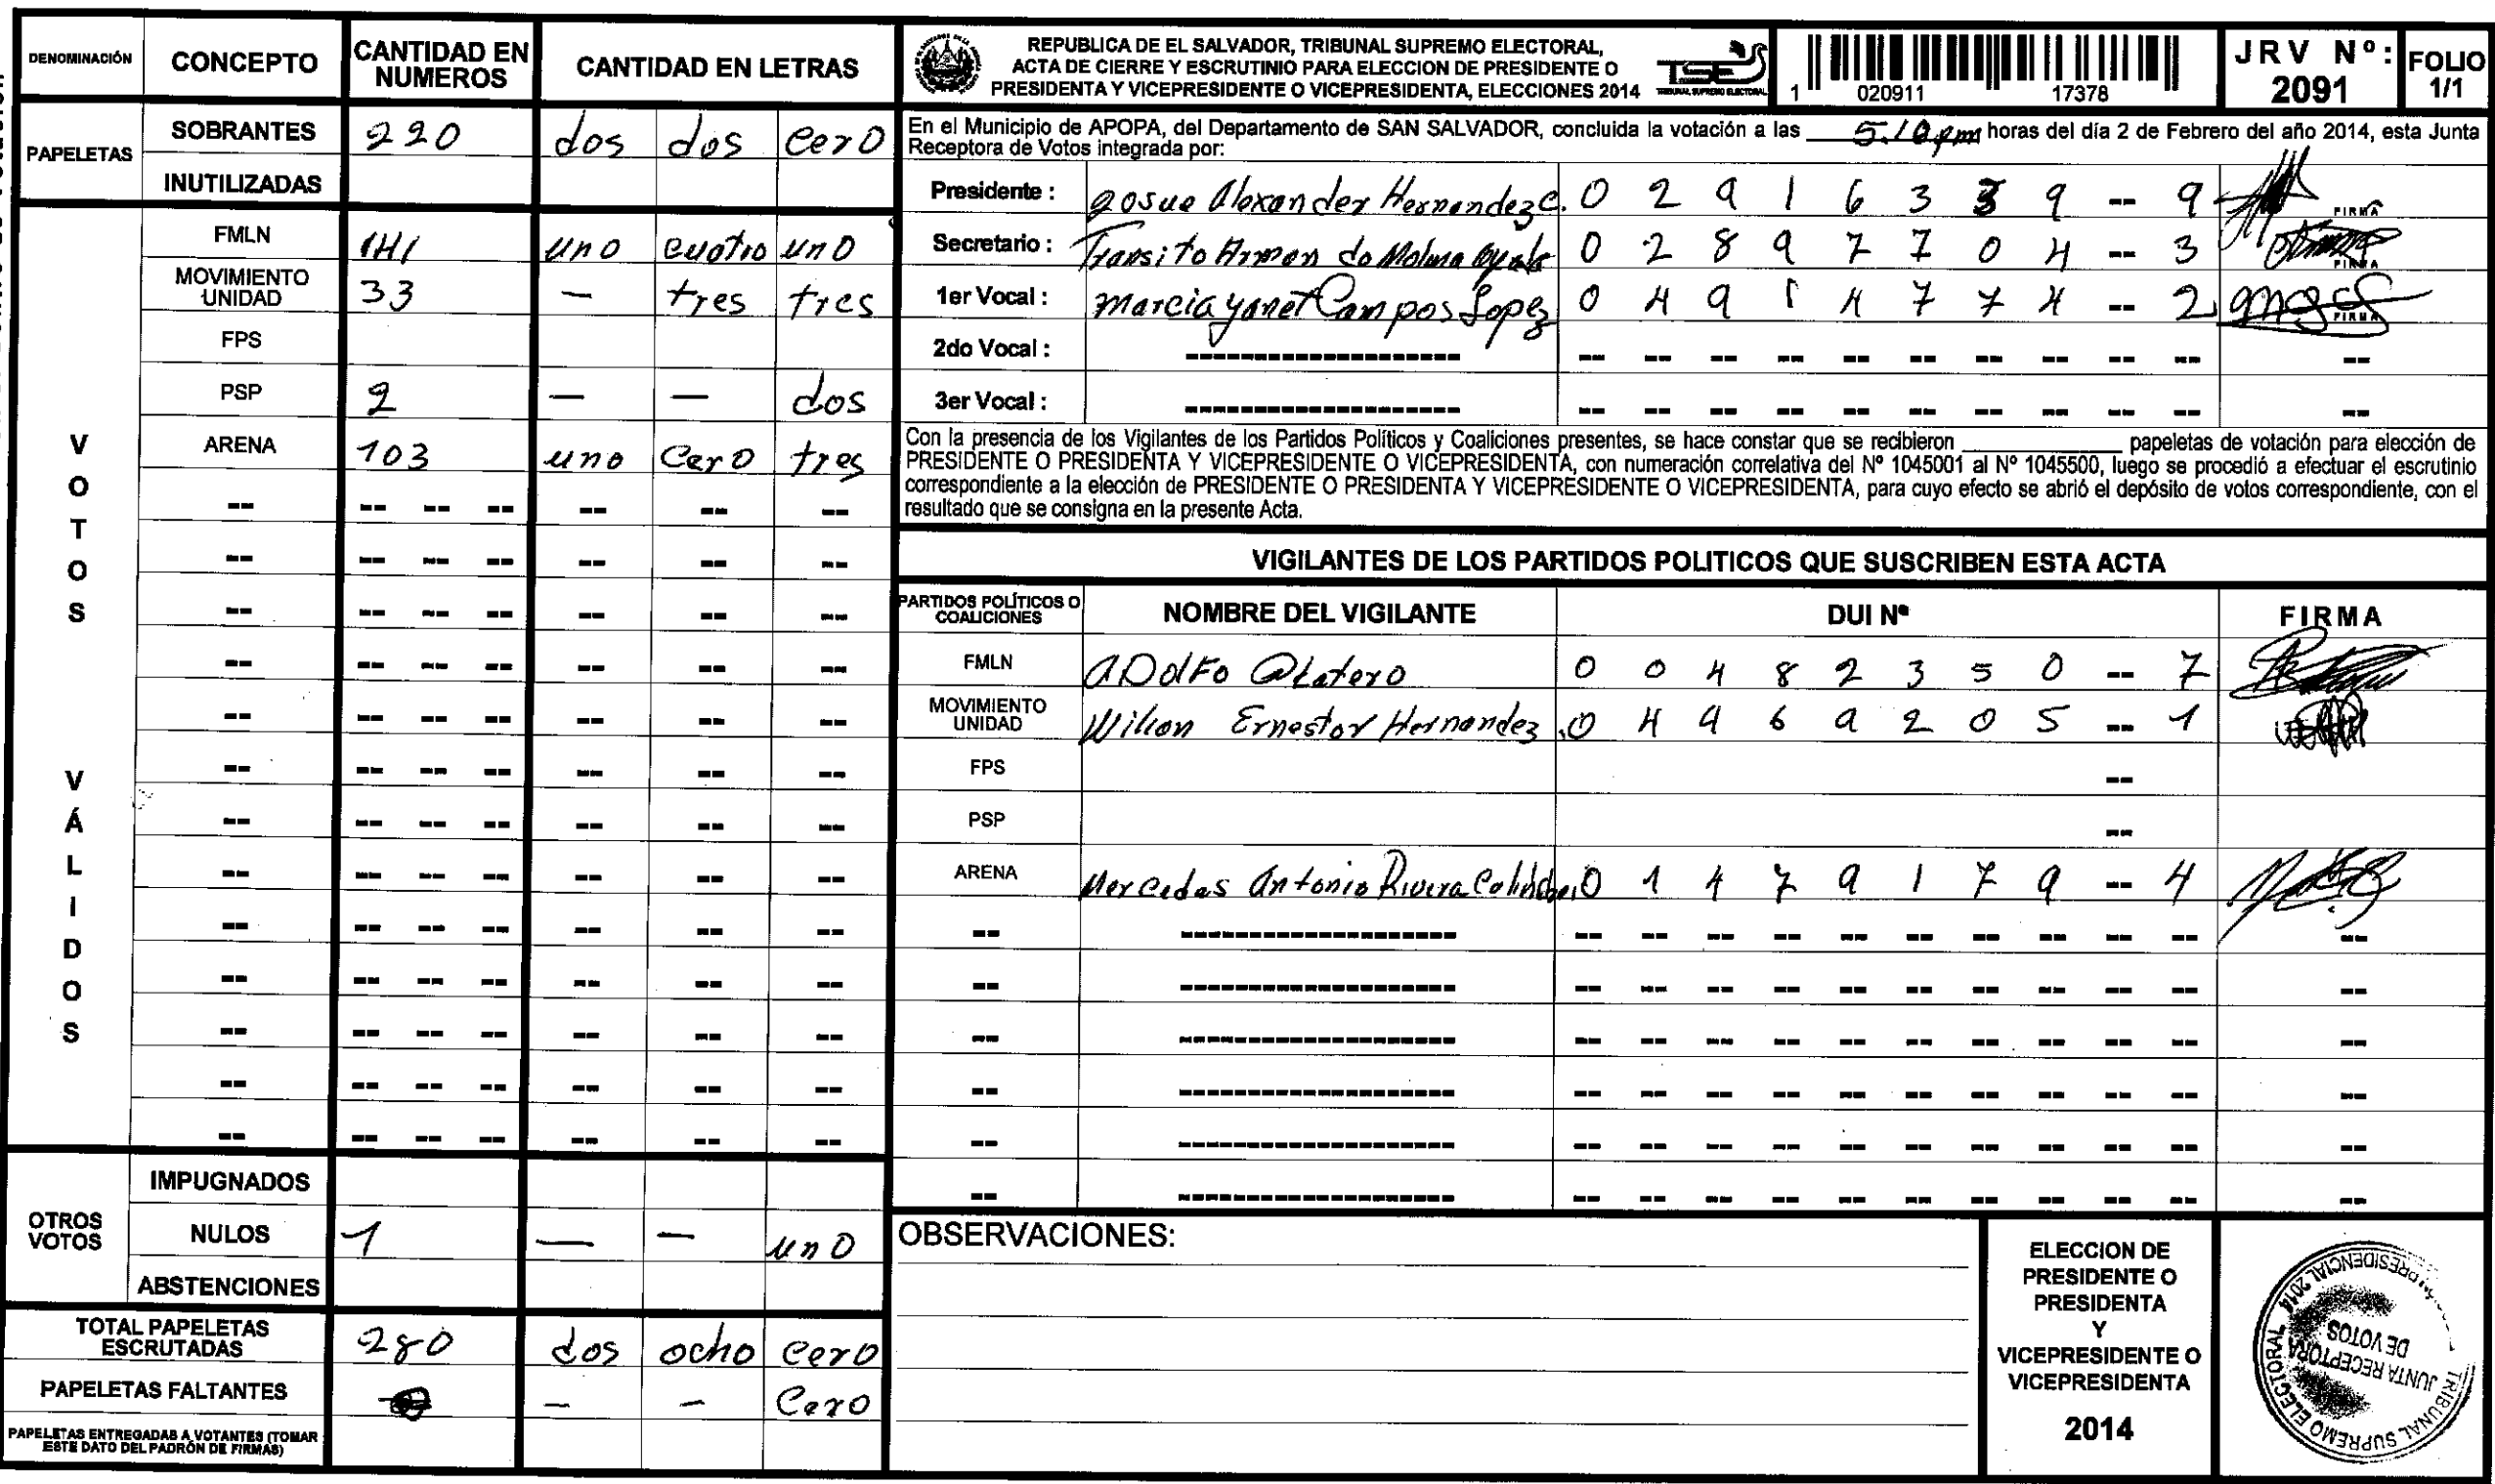 DENOMINACIÓN CONCEPTO CANTIDAD EN NUMEROS CANTIDAD EN LETRAS
PAPELETAS SOBRANTES 220 dos dos cero
INUTILIZADAS
VOTOS VÁLIDOS
FMLN 141 uno cuatro uno
MOVIMIENTO UNIDAD 33 — tres tres
FPS
PSP 2 — — dos
ARENA 103 uno cero tres
OTROS VOTOS
IMPUGNADOS
NULOS 1 — — uno
ABSTENCIONES
TOTAL PAPELETAS ESCRUTADAS 280 dos ocho cero
PAPELETAS FALTANTES — — Cero
PAPELETAS ENTREGADAS A VOTANTES (TOMAR ESTE DATO DEL PADRÓN DE FIRMAS)
REPUBLICA DE EL SALVADOR, TRIBUNAL SUPREMO ELECTORAL,
ACTA DE CIERRE Y ESCRUTINIO PARA ELECCION DE PRESIDENTE O
PRESIDENTA Y VICEPRESIDENTE O VICEPRESIDENTA, ELECCIONES 2014
TSE
TRIBUNAL SUPREMO ELECTORAL
1 020911 17378
JRV Nº: 2091
FOLIO 1/1
En el Municipio de APOPA, del Departamento de SAN SALVADOR, concluida la votación a las 5:10 pm horas del día 2 de Febrero del año 2014, esta Junta
Receptora de Votos integrada por:
Presidente : Josue Alexander Hernandez C. 0 2 9 1 6 3 3 9 -- 9 FIRMA
Secretario : Transito Arman do Molina Ayala 0 2 8 9 7 7 0 4 -- 3 FIRMA
1er Vocal : Marcia Yanet Campos Lopez 0 4 9 1 4 7 7 4 -- 2 FIRMA
2do Vocal :
3er Vocal :
Con la presencia de los Vigilantes de los Partidos Políticos y Coaliciones presentes, se hace constar que se recibieron ________ papeletas de votación para elección de
PRESIDENTE O PRESIDENTA Y VICEPRESIDENTE O VICEPRESIDENTA, con numeración correlativa del Nº 1045001 al Nº 1045500, luego se procedió a efectuar el escrutinio
correspondiente a la elección de PRESIDENTE O PRESIDENTA Y VICEPRESIDENTE O VICEPRESIDENTA, para cuyo efecto se abrió el depósito de votos correspondiente, con el
resultado que se consigna en la presente Acta.
VIGILANTES DE LOS PARTIDOS POLITICOS QUE SUSCRIBEN ESTA ACTA
PARTIDOS POLÍTICOS O COALICIONES NOMBRE DEL VIGILANTE DUI Nº FIRMA
FMLN ADolFo 0 0 4 8 2 3 5 0 -- 7
MOVIMIENTO UNIDAD Ernestor Hernandez 0 4 4 6 9 2 0 5 -- 1
FPS --
PSP --
ARENA Mercedes Antonio Rivera 0 1 4 7 9 1 7 9 -- 4
OBSERVACIONES:
ELECCION DE
PRESIDENTE O
PRESIDENTA
Y
VICEPRESIDENTE O
VICEPRESIDENTA
2014
TRIBUNAL SUPREMO ELECTORAL
PRESIDENCIAL 2014
JUNTA RECEPTORA
DE VOTOS